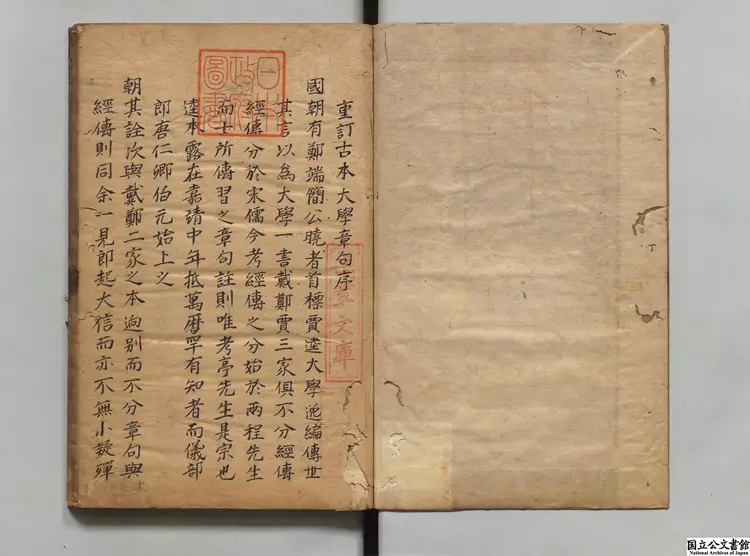 重訂古本大學章句序
國朝有鄭端簡公曉者首標賈逵大學逸編傳世
其言以為大學一書戴鄭賈三家俱不分經傳
經傳分於宋儒今考經傳之分始於兩程先生
而士所傳習之章句註則唯考亭先生是宗也
逵本露在嘉靖中年抵萬曆罕有知者而儀部
郎唐仁卿伯元始上之
朝其詮次與戴鄭二家之本逈别而不分章句與
經傳則同余一見即起大信而亦不無小疑殫
日本
政府
圖書
文庫
国立公文書館
National Archives of Japan